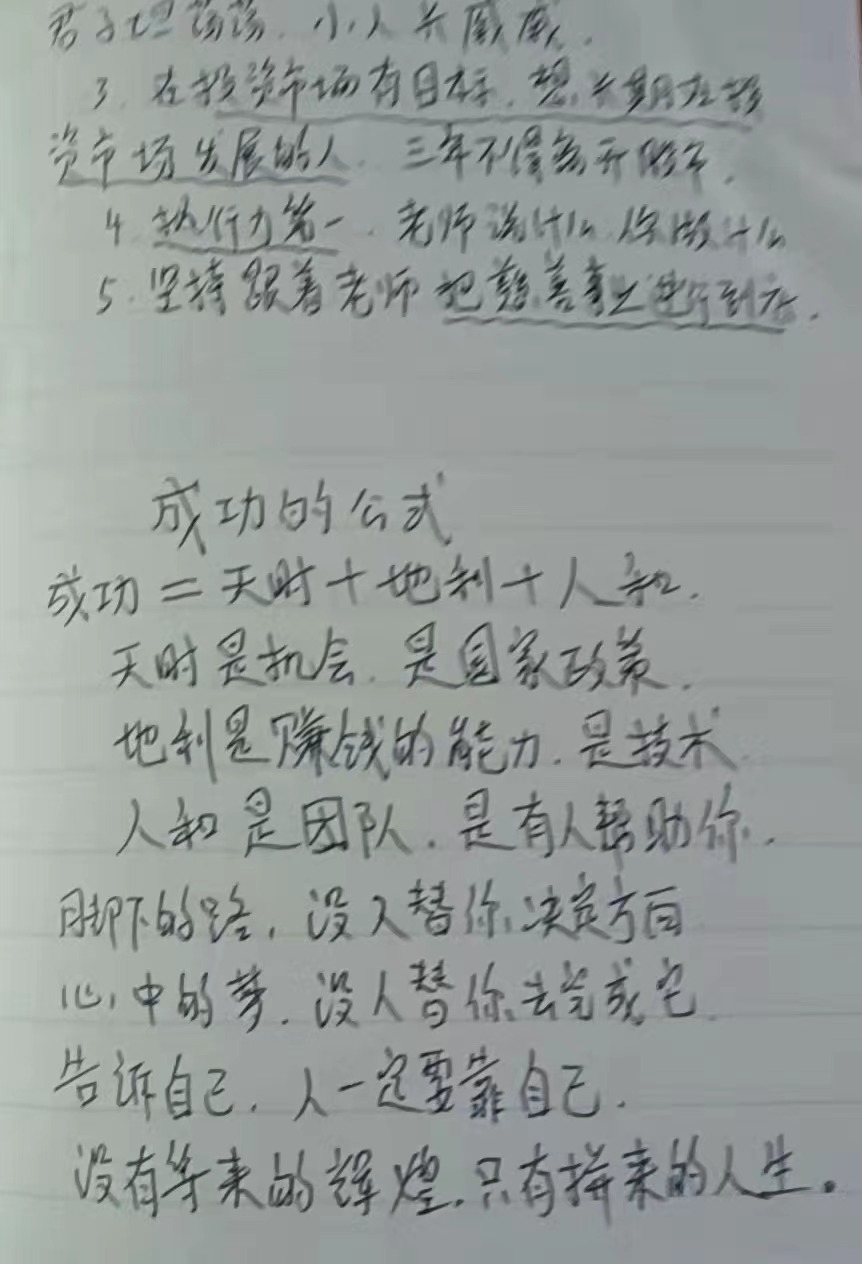 君子坦荡荡，小人长戚戚．
3．在投资市场有目标，想长期在投
资市场发展的人．三年不得离开股市．
4．执行力第一．老师说什么你做什么
5．坚持跟着老师把慈善事业进行到底．
成功的公式
成功＝天时＋地利＋人和．
天时是机会．是国家政策．
地利是赚钱的能力．是技术．
人和是团队．是有人帮助你．
脚下的路，没人替你决定方向
心中的梦．没人替你去完成它．
告诉自己．人一定要靠自己．
没有等来的辉煌．只有拼来的人生。